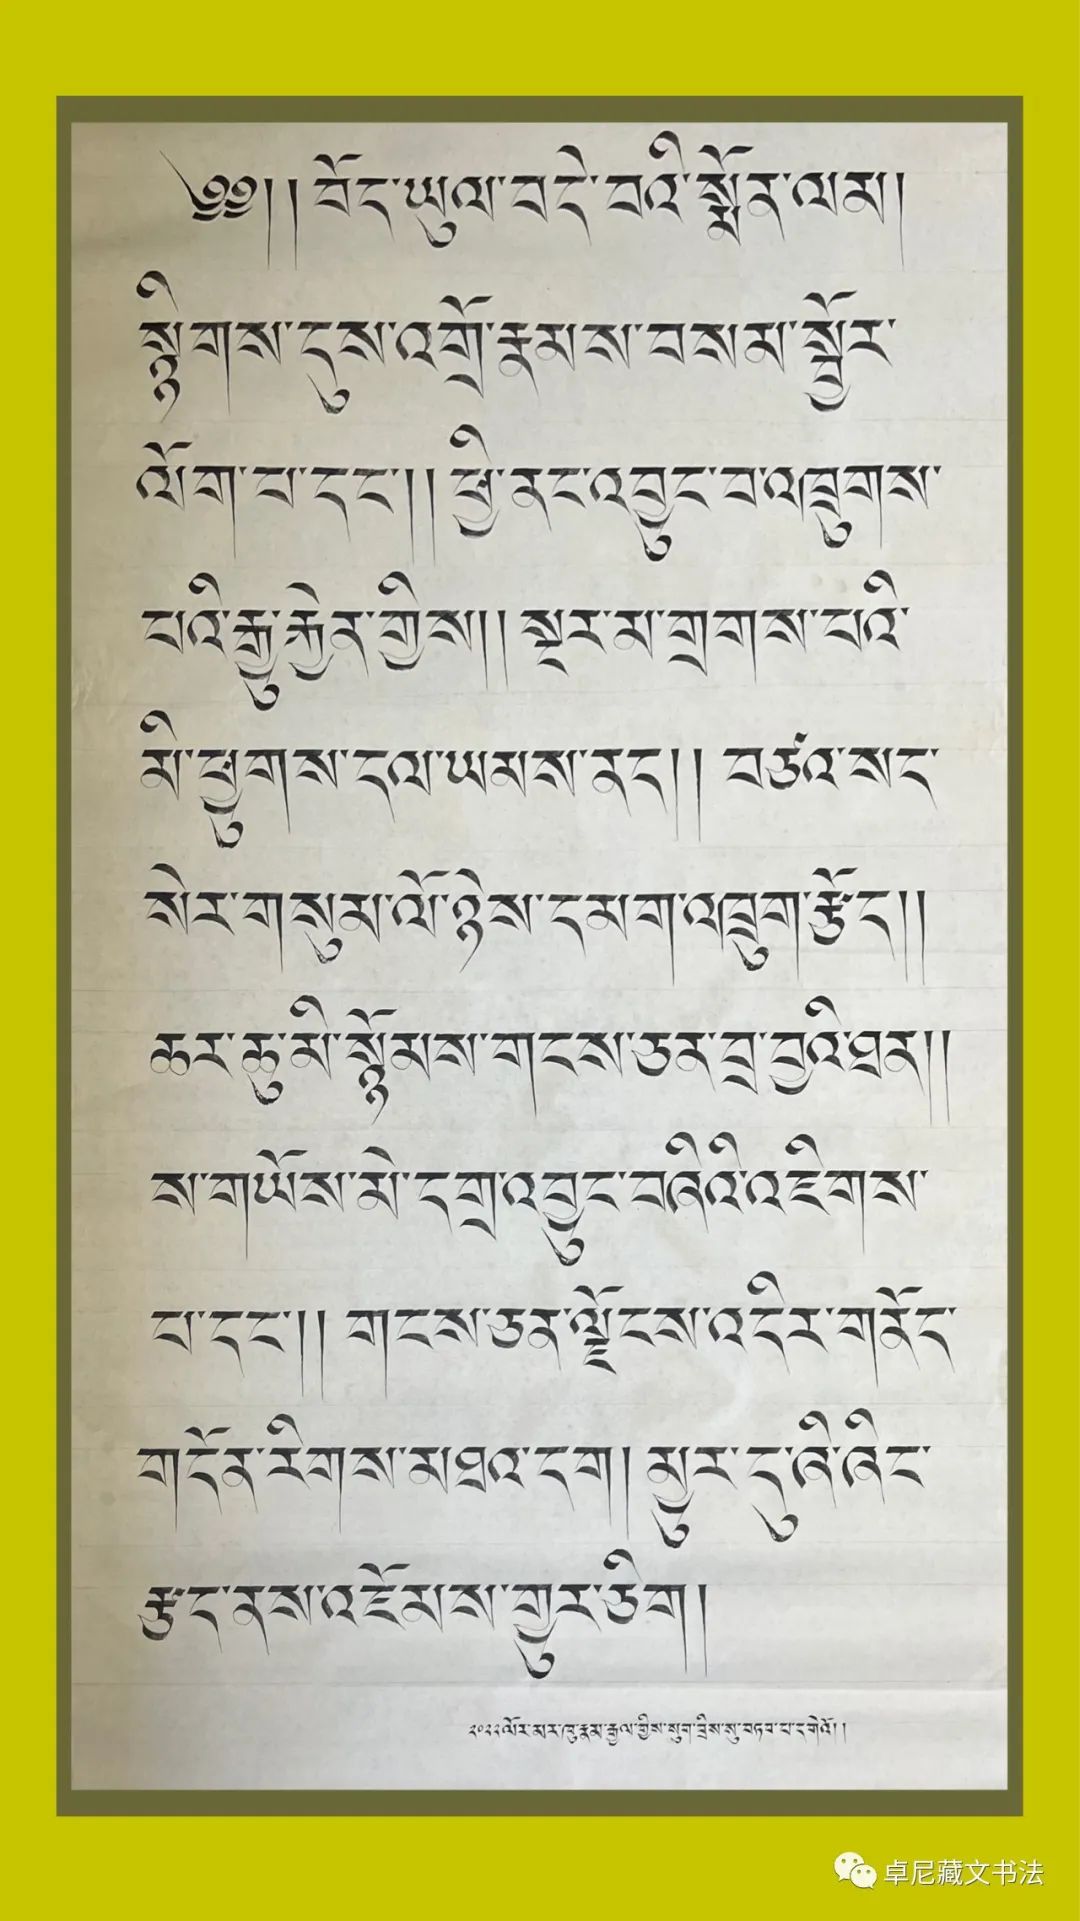 ༄༅། །བོད་ཡུལ་བདེ་བའི་སྨོན་ལམ།
སྙིགས་དུས་འགྲོ་རྣམས་བསམ་སྦྱོར་
ལོག་པ་དང་། །ཕྱི་ནང་འབྱུང་བ་འཁྲུགས་
པའི་རྒྱུ་རྐྱེན་གྱིས། །སྔར་མ་གྲགས་པའི་
མི་ཕྱུགས་དལ་ཡམས་ནད། །བཙའ་སད་
སེར་གསུམ་ལོ་ཉེས་དམག་འཁྲུག་རྩོད། །
ཆར་ཆུ་མི་སྙོམས་གངས་ཅན་བྲ་བྱའི་ཐན། །
ས་གཡོས་མེ་དགྲ་འབྱུང་བཞིའི་འཇིགས་
པ་དང་། །གངས་ཅན་ལྗོངས་འདིར་གནོད་
གདོན་རིགས་མཐའ་དག །མྱུར་དུ་ཞི་ཞིང་
རྩད་ནས་འཇོམས་གྱུར་ཅིག །
༢༠༢༢ལོར་མར་ཁུ་རྣམ་རྒྱལ་གྱིས་སུག་བྲིས་སུ་བཏབ་པ་དགེའོ། །
卓尼藏文书法